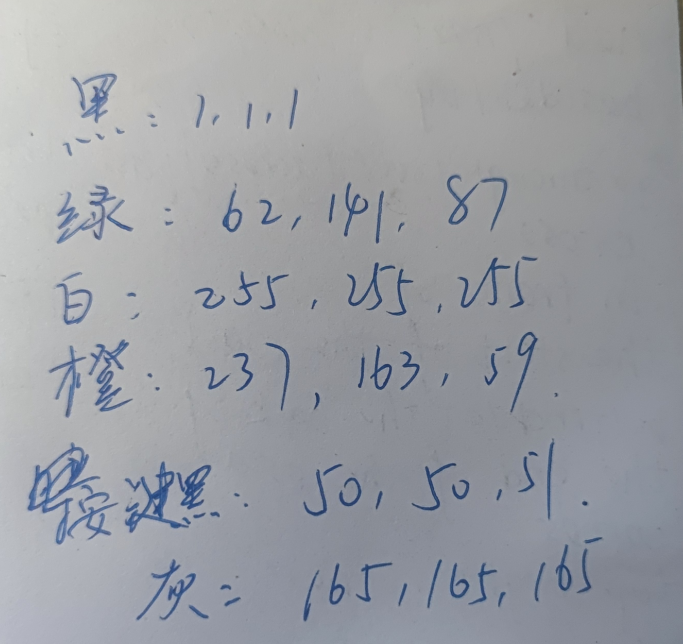 黑：1，1，1
绿：62，141，87
白：255，255，255
橙：237，163，59．
按键黑：50，50，51．
灰：165，165，165